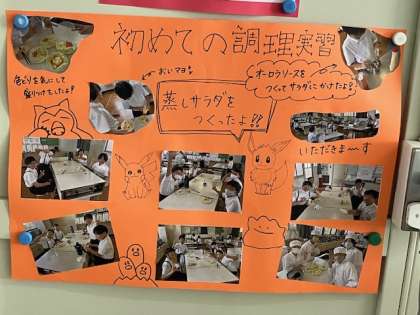 初めての調理実習
色どりを気にして
盛りつけをしたよ!
おいマヨ
蒸しサラダを
つくったよ!!
オーロラソースを
つくってサラダにかけたよ!
いただきまーす